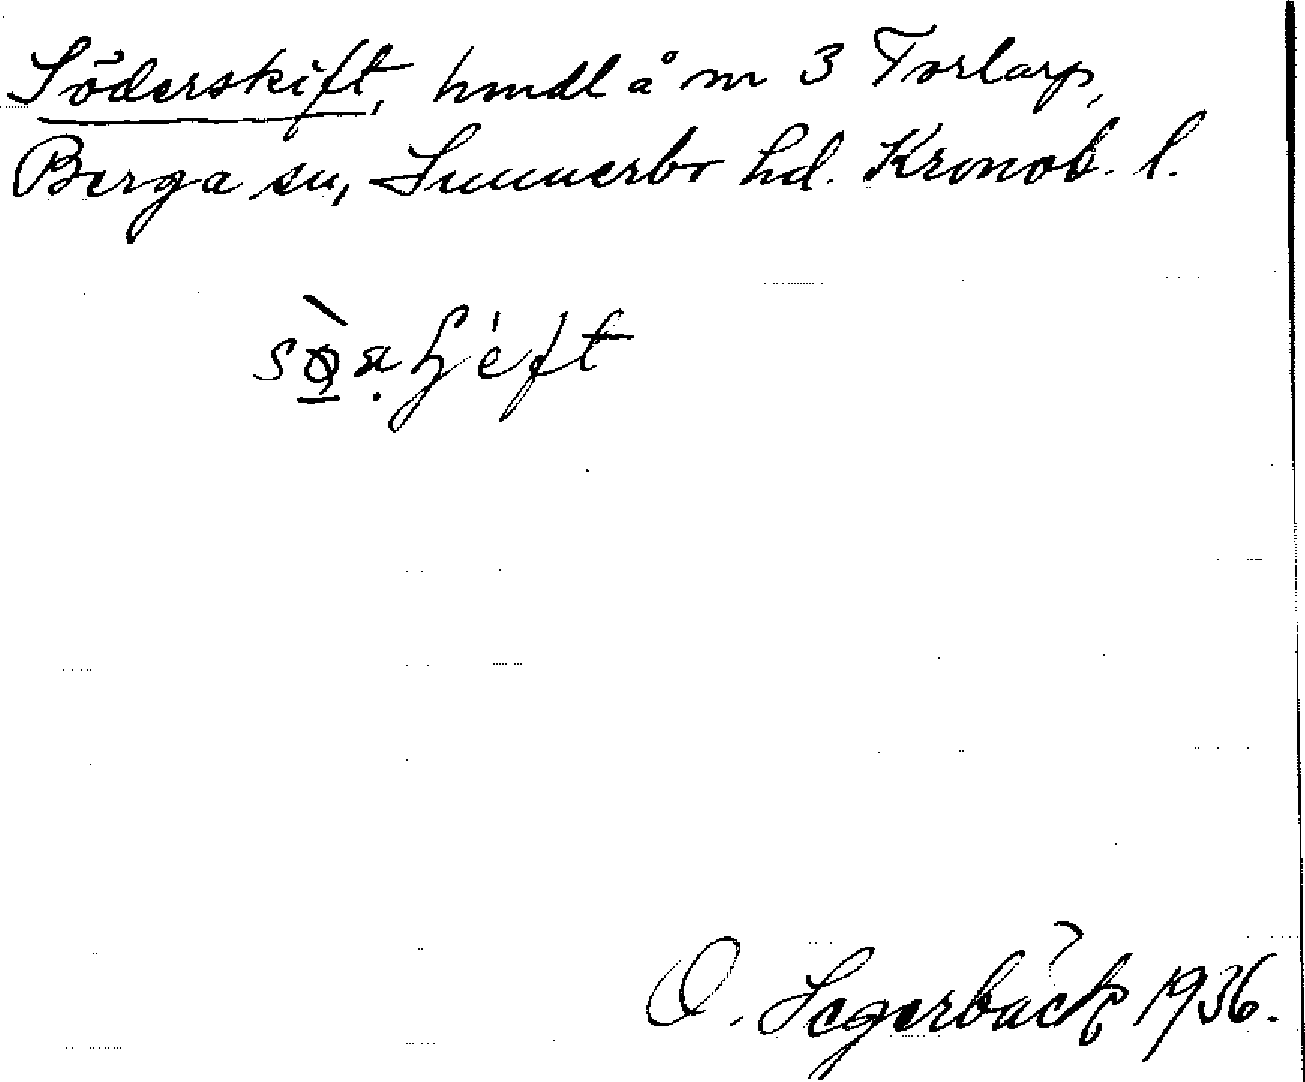 Söderskift, hmdl å nr 3 Torlarp,
Berga sn, Sunnerbo hd. Kronob. l.
O. Segerbäck 1936.